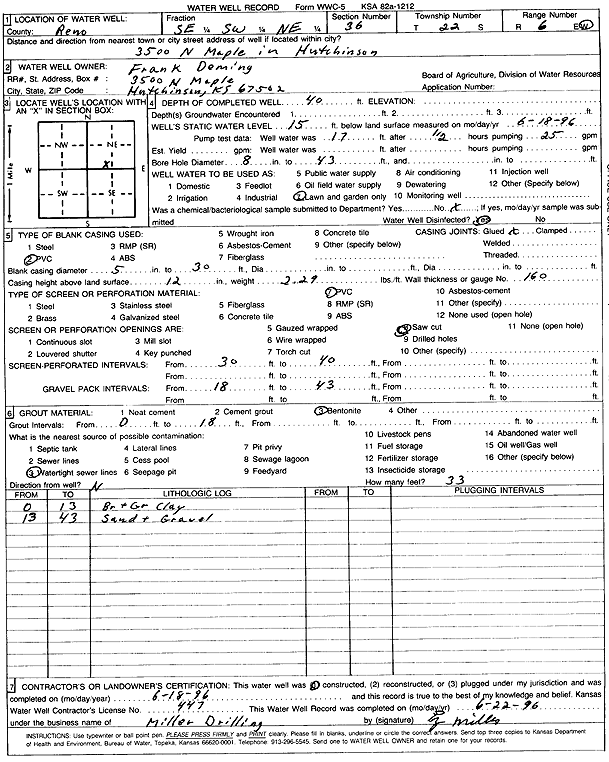 WATER WELL RECORD Form WWC-5 KSA 82a-1212
1 LOCATION OF WATER WELL: Fraction Section Number Township Number Range Number
County: Reno SE ¼ SW ¼ NE ¼ 36 T 22 S R 6 E/W
Distance and direction from nearest town or city street address of well if located within city?
3500 N Maple in Hutchinson
2 WATER WELL OWNER: Frank Deming
RR#, St. Address, Box # : 3500 N Maple Board of Agriculture, Division of Water Resources
City, State, ZIP Code : Hutchinson, KS 67502 Application Number:
3 LOCATE WELL'S LOCATION WITH AN "X" IN SECTION BOX:
N
NW NE
W X E
SW SE
S
1 Mile
4 DEPTH OF COMPLETED WELL 40 ft. ELEVATION:
Depth(s) Groundwater Encountered 1. ft. 2. ft. 3. ft.
WELL'S STATIC WATER LEVEL 15 ft. below land surface measured on mo/day/yr 6-18-96
Pump test data: Well water was 17 ft. after 1/2 hours pumping 25 gpm
Est. Yield gpm: Well water was ft. after hours pumping gpm
Bore Hole Diameter 8 in. to 43 ft., and in. to ft.
WELL WATER TO BE USED AS: 5 Public water supply 8 Air conditioning 11 Injection well
1 Domestic 3 Feedlot 6 Oil field water supply 9 Dewatering 12 Other (Specify below)
2 Irrigation 4 Industrial 7 Lawn and garden only 10 Monitoring well
Was a chemical/bacteriological sample submitted to Department? Yes No X ; If yes, mo/day/yr sample was submitted Water Well Disinfected? Yes No
5 TYPE OF BLANK CASING USED: 5 Wrought iron 8 Concrete tile CASING JOINTS: Glued X Clamped
1 Steel 3 RMP (SR) 6 Asbestos-Cement 9 Other (specify below) Welded
2 PVC 4 ABS 7 Fiberglass Threaded
Blank casing diameter 5 in. to 30 ft., Dia in. to ft., Dia in. to ft.
Casing height above land surface 12 in., weight 2.29 lbs./ft. Wall thickness or gauge No. 160
TYPE OF SCREEN OR PERFORATION MATERIAL: 7 PVC 10 Asbestos-cement
1 Steel 3 Stainless steel 5 Fiberglass 8 RMP (SR) 11 Other (specify)
2 Brass 4 Galvanized steel 6 Concrete tile 9 ABS 12 None used (open hole)
SCREEN OR PERFORATION OPENINGS ARE: 5 Gauzed wrapped 8 Saw cut 11 None (open hole)
1 Continuous slot 3 Mill slot 6 Wire wrapped 9 Drilled holes
2 Louvered shutter 4 Key punched 7 Torch cut 10 Other (specify)
SCREEN-PERFORATED INTERVALS: From 30 ft. to 40 ft., From ft. to ft.
From ft. to ft., From ft. to ft.
GRAVEL PACK INTERVALS: From 18 ft. to 43 ft., From ft. to ft.
From ft. to ft., From ft. to ft.
6 GROUT MATERIAL: 1 Neat cement 2 Cement grout 3 Bentonite 4 Other
Grout Intervals: From 0 ft. to 18 ft., From ft. to ft., From ft. to ft.
What is the nearest source of possible contamination: 10 Livestock pens 14 Abandoned water well
1 Septic tank 4 Lateral lines 7 Pit privy 11 Fuel storage 15 Oil well/Gas well
2 Sewer lines 5 Cess pool 8 Sewage lagoon 12 Fertilizer storage 16 Other (specify below)
3 Watertight sewer lines 6 Seepage pit 9 Feedyard 13 Insecticide storage
Direction from well? N How many feet? 33
FROM TO LITHOLOGIC LOG FROM TO PLUGGING INTERVALS
0 13 Br + Gr Clay
13 43 Sand + Gravel
7 CONTRACTOR'S OR LANDOWNER'S CERTIFICATION: This water well was (1) constructed, (2) reconstructed, or (3) plugged under my jurisdiction and was
completed on (mo/day/year) 6-18-96 and this record is true to the best of my knowledge and belief. Kansas
Water Well Contractor's License No. 447 This Water Well Record was completed on (mo/day/yr) 6-22-96
under the business name of Miller Drilling by (signature)
INSTRUCTIONS: Use typewriter or ball point pen. PLEASE PRESS FIRMLY and PRINT clearly. Please fill in blanks, underline or circle the correct answers. Send top three copies to Kansas Department
of Health and Environment, Bureau of Water, Topeka, Kansas 66620-0001. Telephone 913-296-5545. Send one to WATER WELL OWNER and retain one for your records.